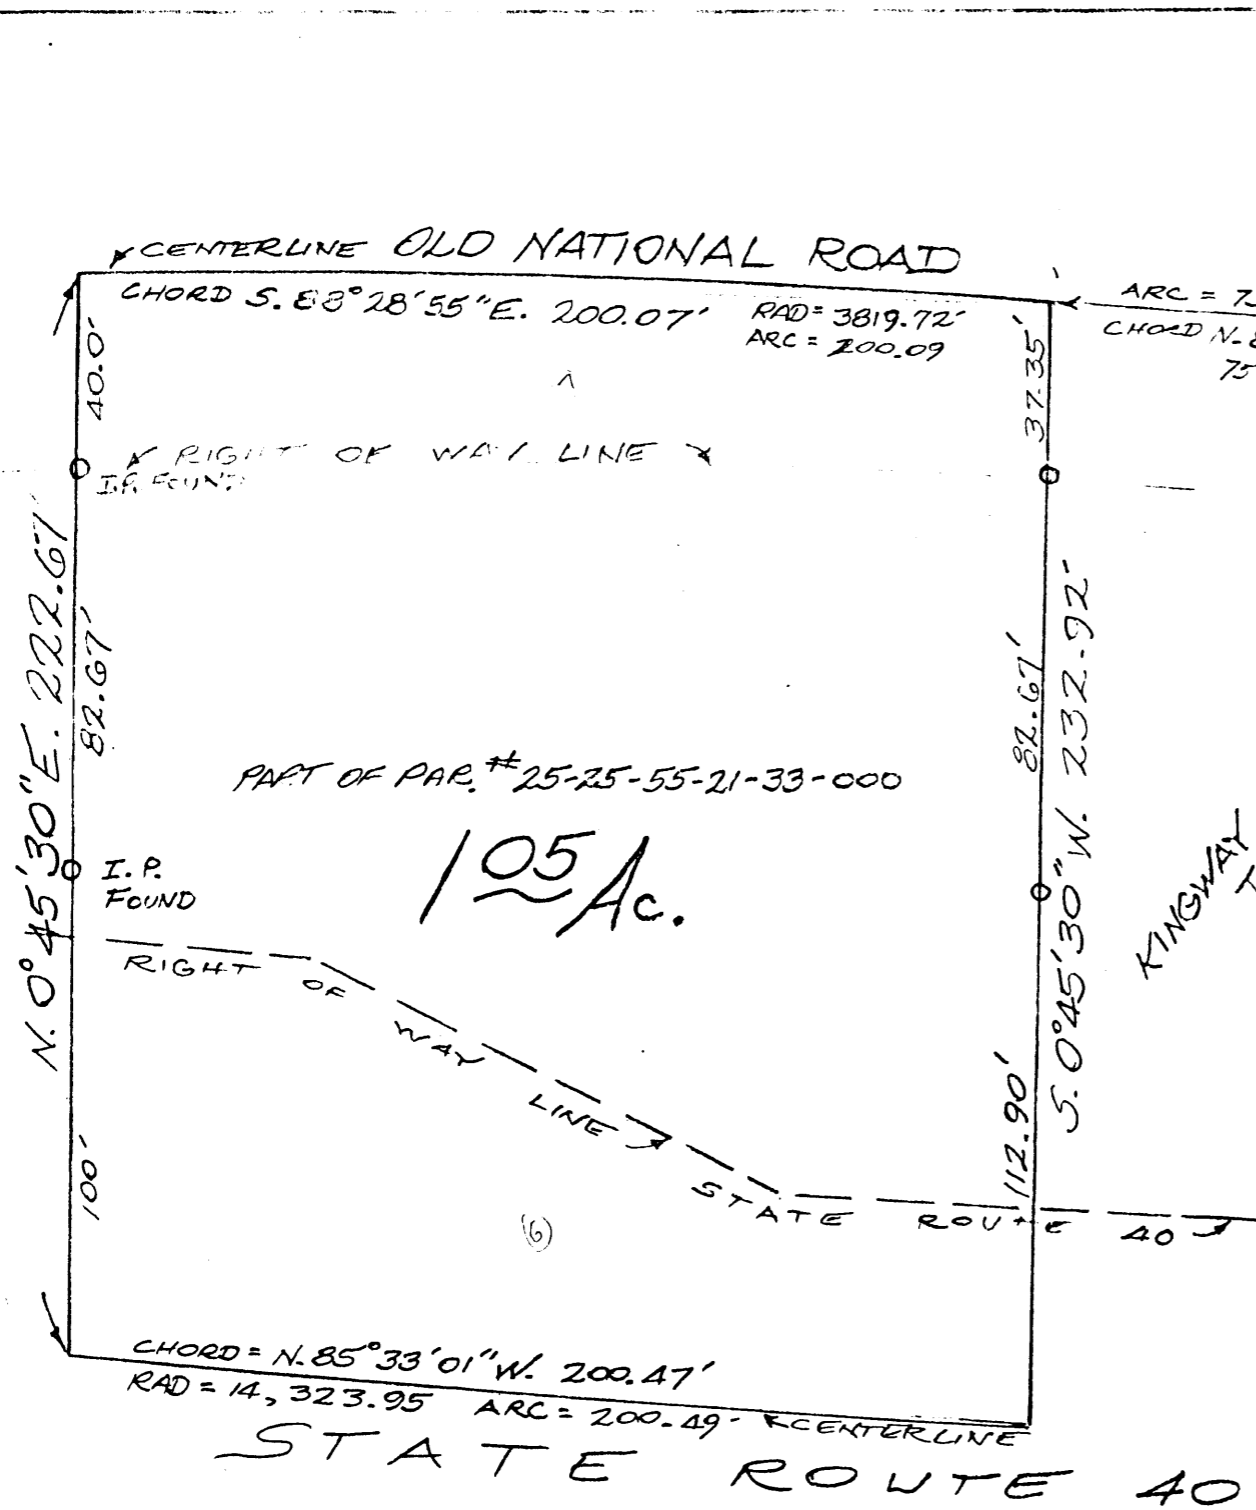 CENTERLINE OLD NATIONAL ROAD
CHORD S. 88°28'55"E. 200.07'
RAD = 3819.72'
ARC = 200.09
ARC = 75
CHORD N. 8
75
40.0'
37.35'
RIGHT OF WAY LINE
I.P. FOUND
N. 0°45'30"E. 222.67
82.67'
82.67'
S. 0°45'30"W. 232.92'
PART OF PAR. #25-25-55-21-33-000
1 05 Ac.
I.P.
FOUND
KINGWAY
RIGHT OF WAY LINE
STATE ROUTE 40
100'
112.90'
(6)
CHORD = N. 85°33'01"W. 200.47'
RAD = 14,323.95 ARC = 200.49' CENTERLINE
STATE ROUTE 40